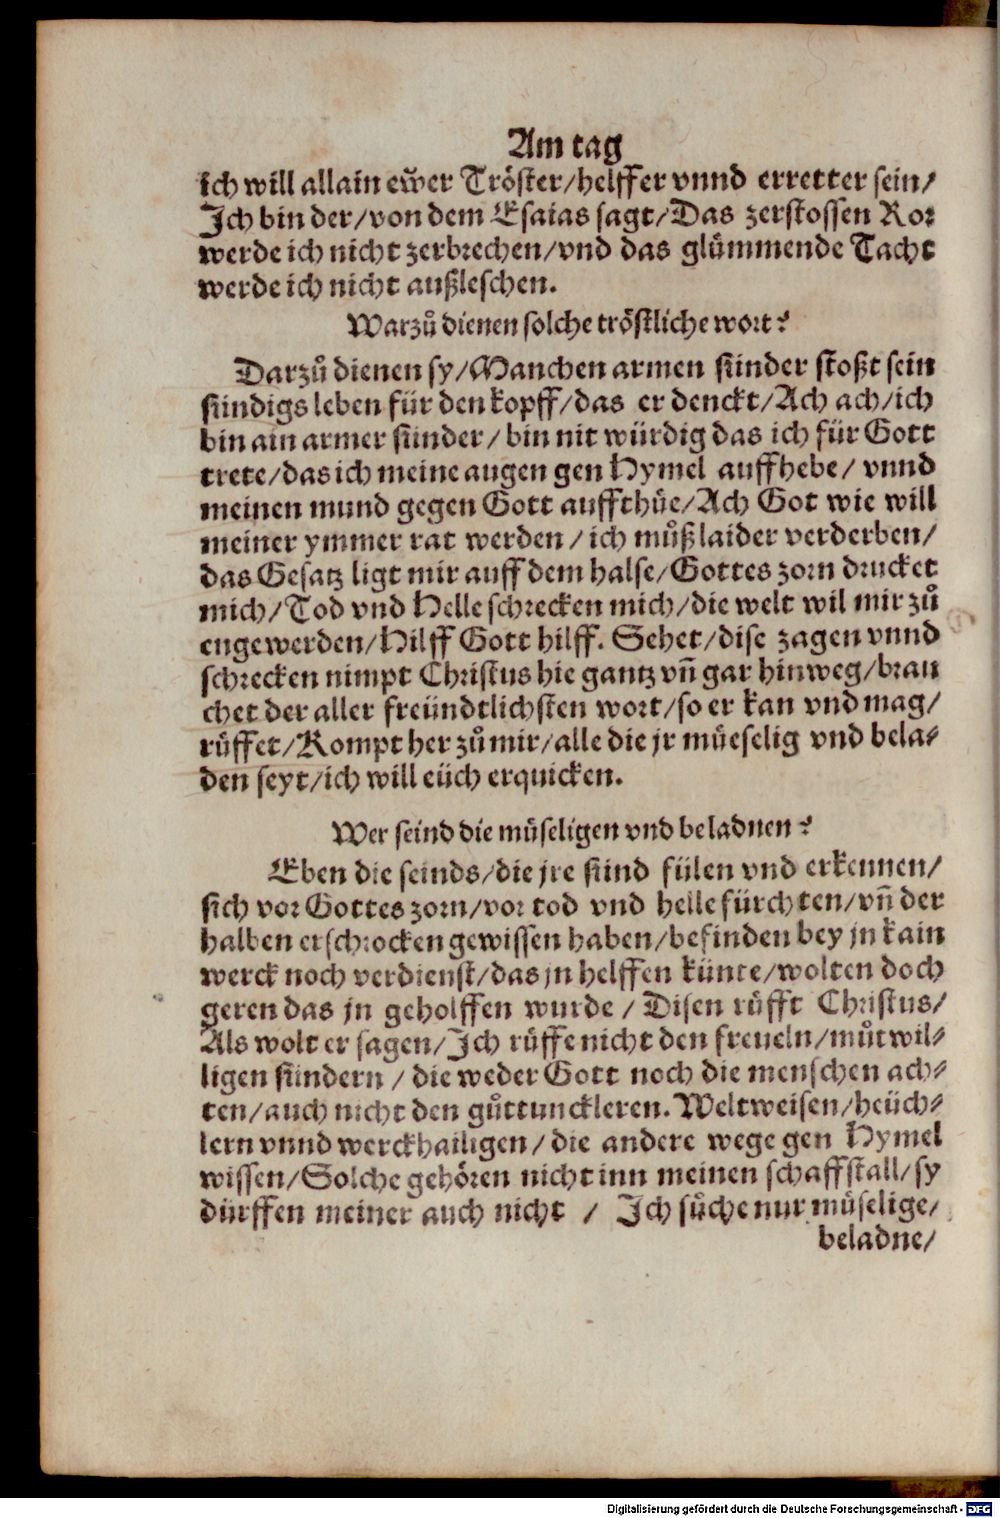 Am tag
ich will allain eẅer Tröster/helffer vnnd erretter sein/
Ich bin der/von dem Esaias sagt/Das zerstossen Ror
werde ich nicht zerbrechen/vnd das glümmende Tacht
werde ich nicht außleschen.
Warzů dienen solche tröstliche wort?
Darzů dienen sy/Manchen armen sünder stoßt sein
sündigs leben für den kopff/das er denckt/Ach ach/ich
bin ain armer sünder/bin nit würdig das ich für Gott
trete/das ich meine augen gen Hymel auffhebe/vnnd
meinen mund gegen Gott auffthüe/Ach Got wie will
meiner ymmer rat werden/ich můß laider verderben/
das Gesatz ligt mir auff dem halse/Gottes zorn drucket
mich/Tod vnd Helle schrecken mich/die welt wil mir zů
enge werden/Hilff Gott hilff. Sehet/dise zagen vnnd
schrecken nimpt Christus hie gantz vñ gar hinweg/brau
chet der aller freündtlichsten wort/so er kan vnd mag/
rüffet/Kompt her zů mir/alle die jr müeselig vnd bela-
den seyt/ich will eüch erquicken.
Wer seind die müseligen vnd beladnen?
Eben die seinds/die jre sünd fülen vnd erkennen/
sich vor Gottes zorn/vor tod vnd helle fürchten/vñ der
halben erschrocken gewissen haben/befinden bey jn kain
werck noch verdienst/das jn helffen künte/wolten doch
geren das jn geholffen wurde/Disen rüfft Christus/
Als wolt er sagen/Ich rüffe nicht den freueln/můtwil-
ligen sündern/die weder Gott noch die menschen ach-
ten/auch nicht den gůttunckleren. Weltweisen/heüch-
lern vnnd werckhailigen/die andere wege gen Hymel
wissen/Solche gehören nicht inn meinen schaffstall/sy
dürffen meiner auch nicht/Ich sůche nur müselige/
beladne/
Digitalisierung gefördert durch die Deutsche Forschungsgemeinschaft - DFG